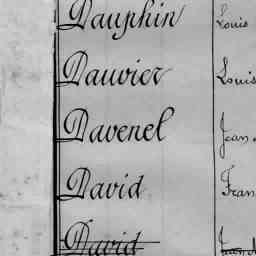 Dauphin Louis
Dauvier Louis
Davenel Jean
David Fran
David Jean